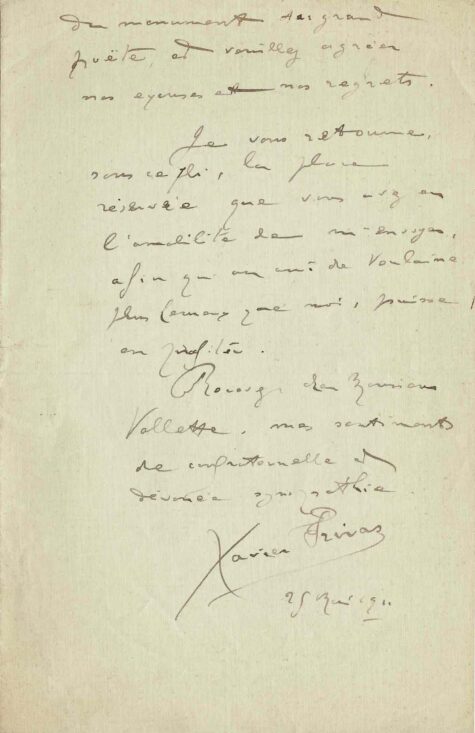 du monument du grand
poëte, et veuillez agréer
nos excuses et nos regrets.
Je vous retourne,
sous ce pli, la place
réservée que vous avez eu
l'amabilité de m'envoyer,
afin qu'un ami de Verlaine
plus heureux que moi, puisse
en profiter.
Recevez cher Monsieur
Vallette, mes sentiments
de confraternelle et
dévouée sympathie.
Xavier Privas
25 Mai 1911